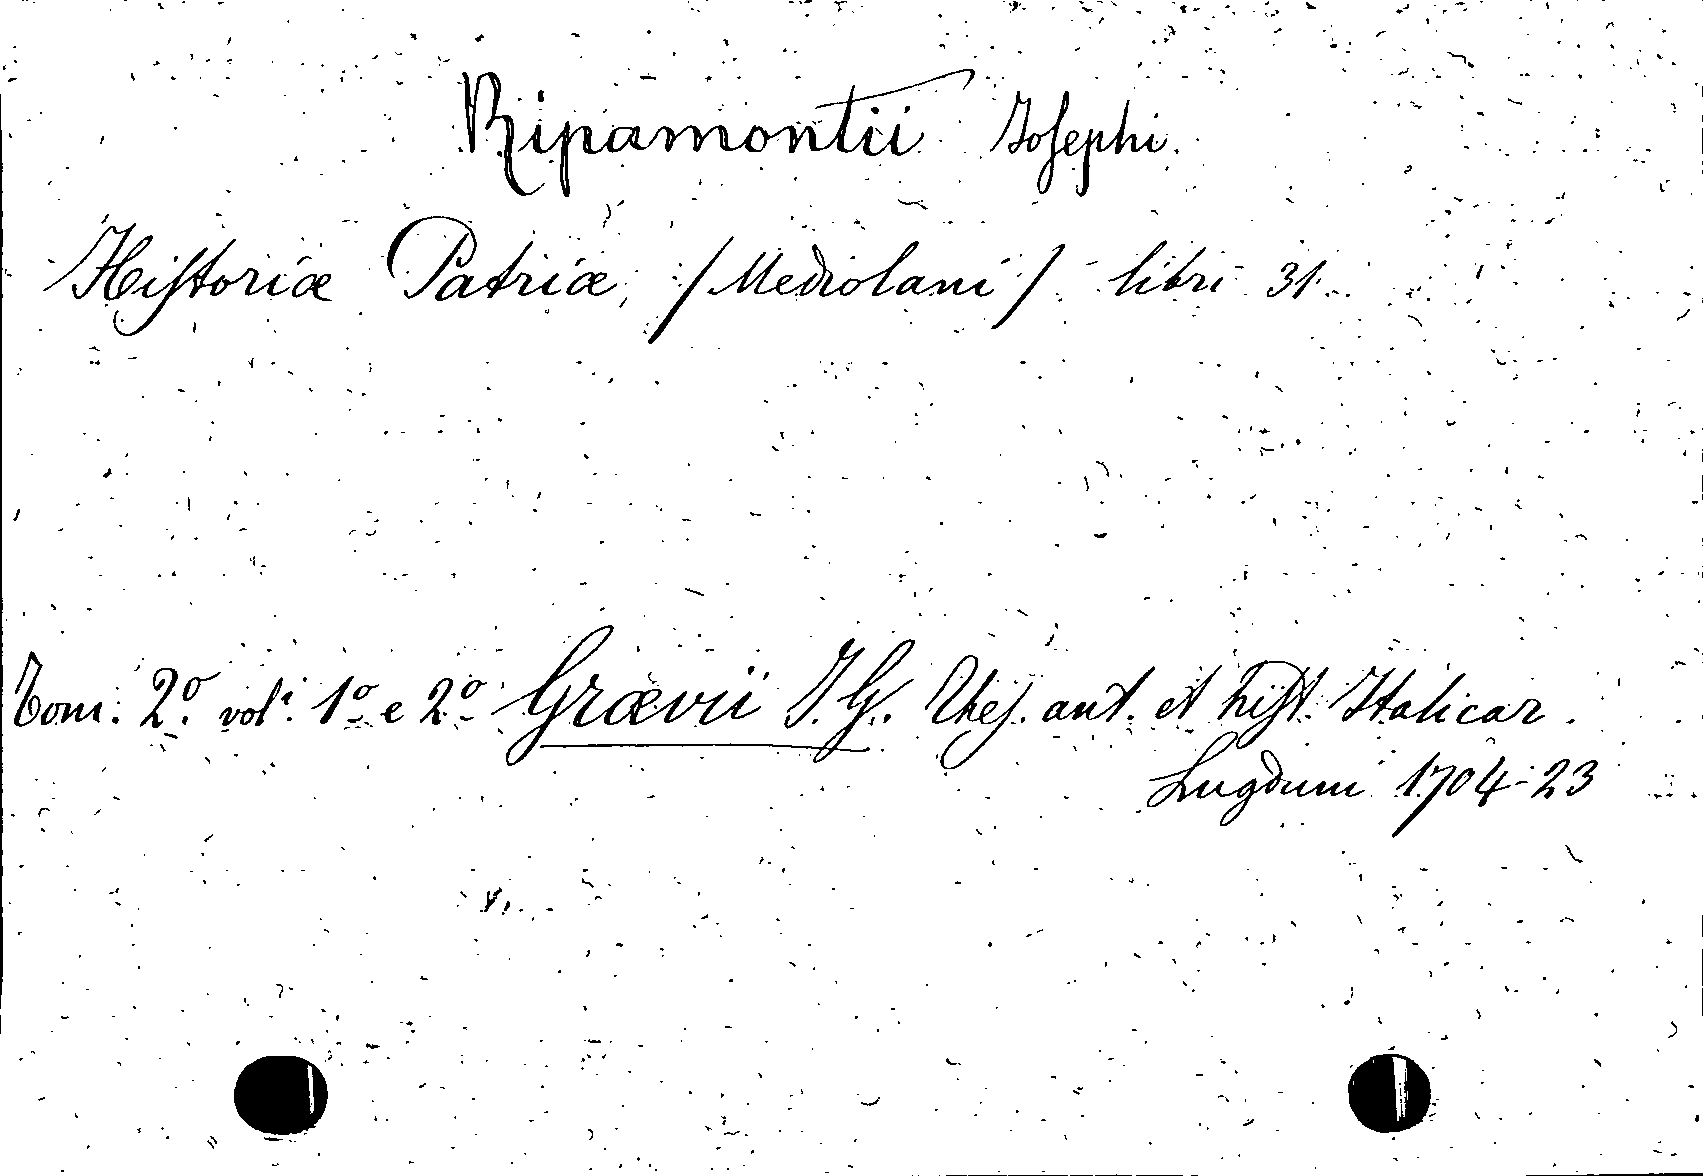 Ripamontii Josephi.
Historiæ Patriæ, /Mediolani/ libri 31.
Tom. 2º. volⁱ. 1º e 2º Grævii J. G. Thes. ant. et hist. Italicar.
Lugduni 1704-23